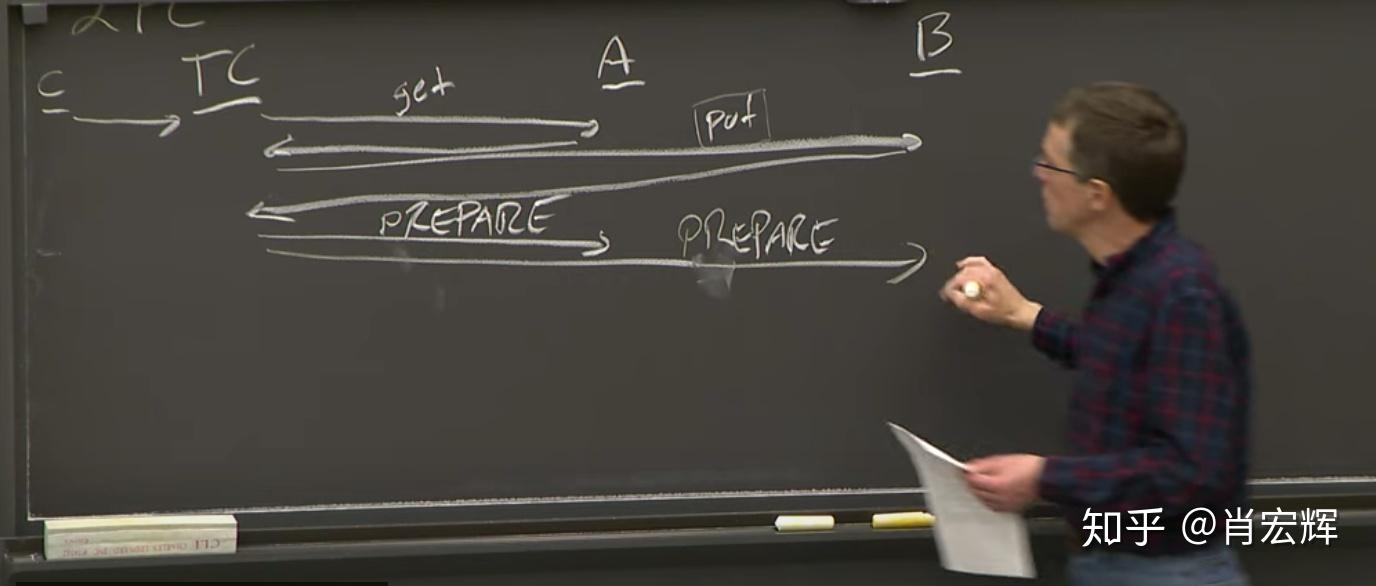 2PC
C TC A B
get
put
PREPARE PREPARE
知乎 @肖宏辉